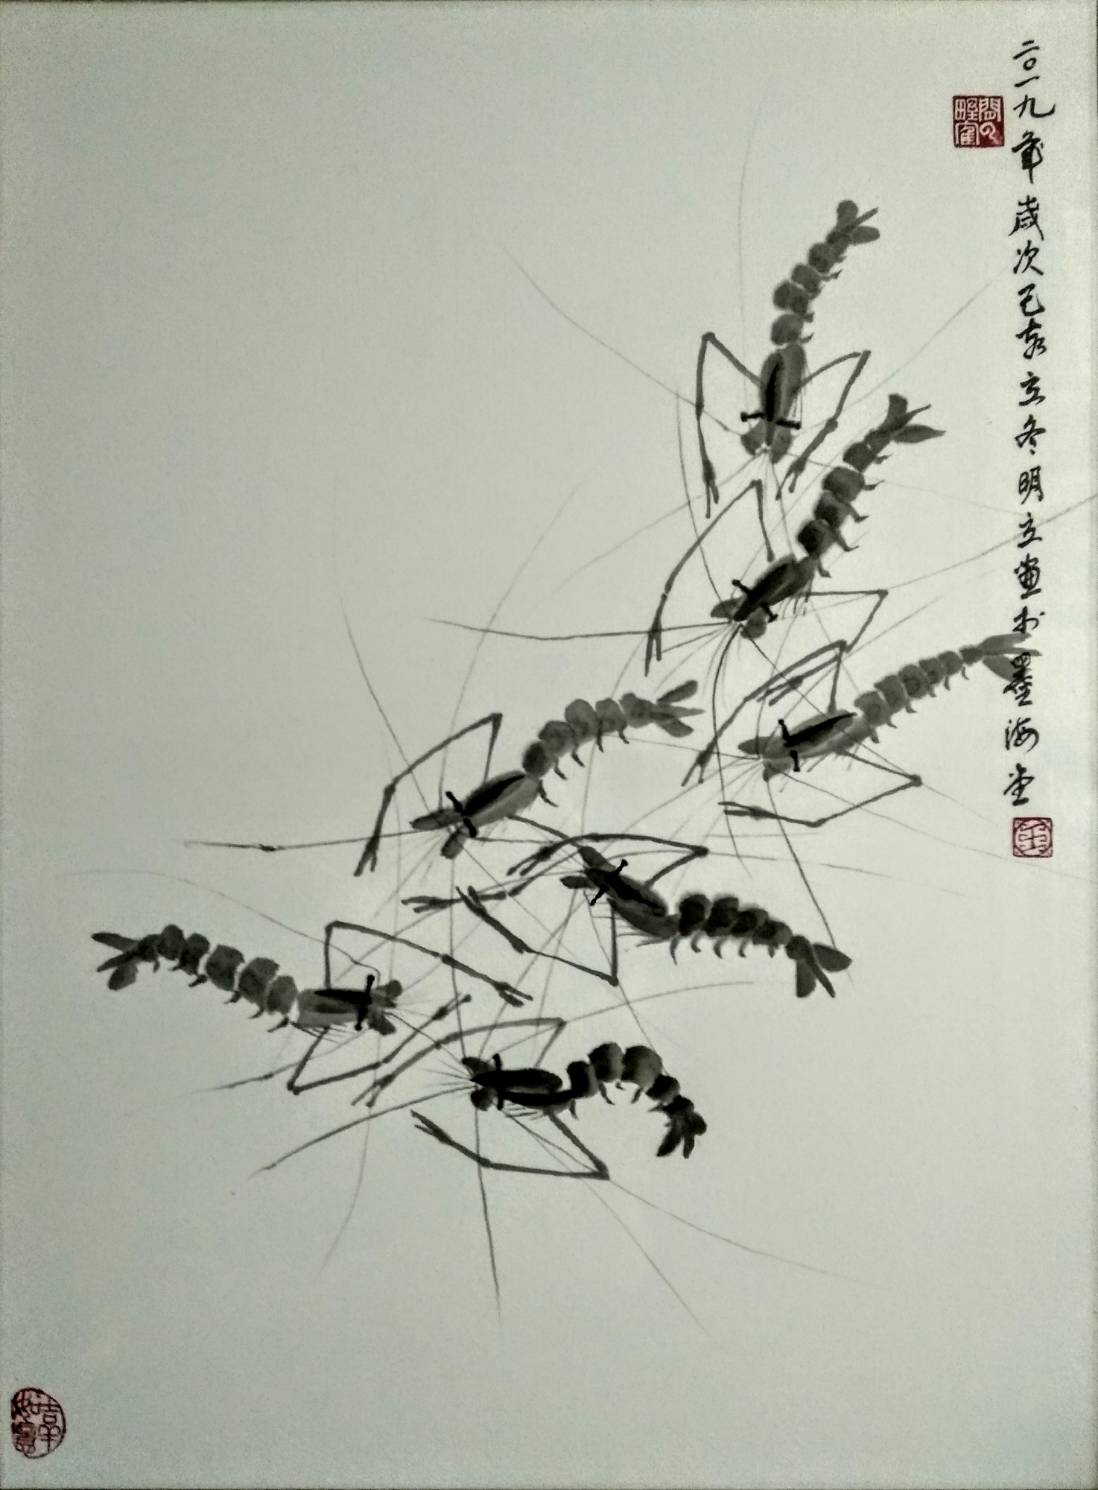 二〇一九年歲次己亥立冬明立畫於墨海堂